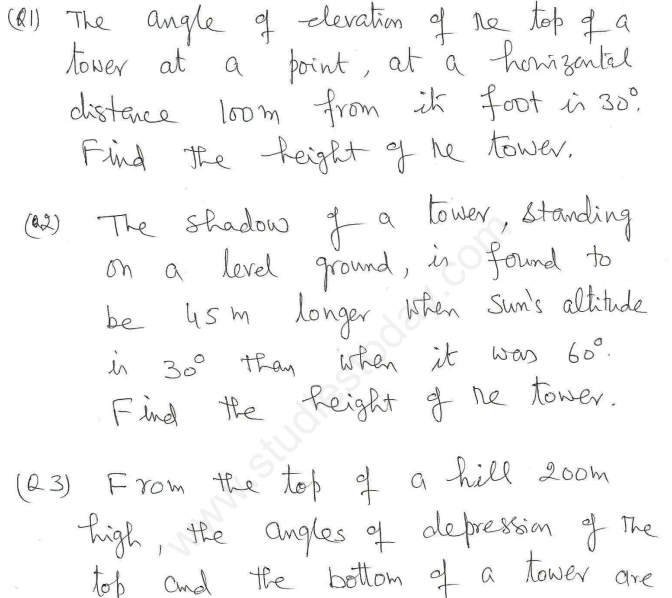 (Q1) The angle of elevation of the top of a
tower at a point, at a horizontal
distance 100m from its foot is 30°.
Find the height of the tower.
(Q2) The shadow of a tower, standing
on a level ground, is found to
be 45m longer when Sun's altitude
is 30° than when it was 60°.
Find the height of the tower.
(Q3) From the top of a hill 200m
high, the angles of depression of the
top and the bottom of a tower are
www.studiestoday.com